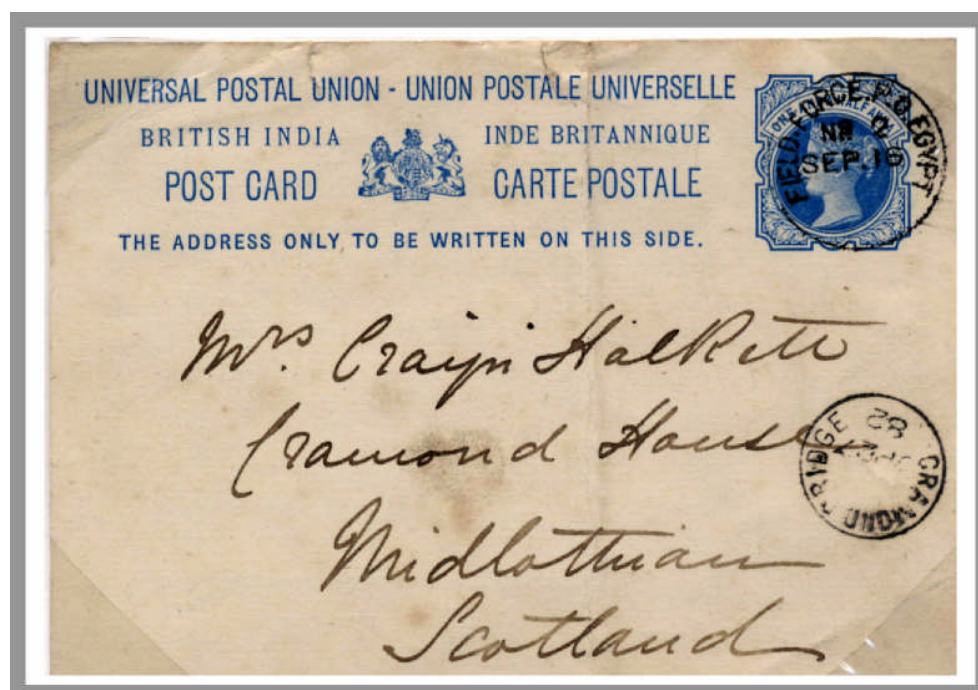 UNIVERSAL POSTAL UNION - UNION POSTALE UNIVERSELLE
BRITISH INDIA INDE BRITANNIQUE
POST CARD CARTE POSTALE
THE ADDRESS ONLY TO BE WRITTEN ON THIS SIDE.
ONE HALF
FIELD FORCE P.O. EGYPT
SEP. 10
Mrs. Craigie Halkett
Cramond House
Midlothian
Scotland
CRAMOND BRIDGE
82